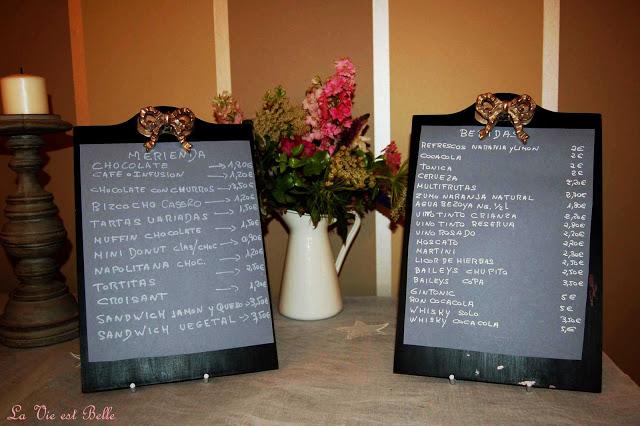 MERIENDA
CHOCOLATE → 1,20€
CAFE o INFUSION → 1,20€
CHOCOLATE CON CHURROS → 3,50€
BIZCOCHO CASERO → 1,20€
TARTAS VARIADAS → 1,50€
MUFFIN CHOCOLATE → 1,50€
MINI DONUT CLAS/CHOC → 0,90€
NAPOLITANA CHOC. → 1,20€
TORTITAS → 2,50€
CROISANT → 1,20€
SANDWICH JAMON Y QUESO → 3,50€
SANDWICH VEGETAL → 3,50€
BEBIDAS
REFRESCOS NARANJA Y LIMON 2€
COCACOLA 2€
TONICA 2€
CERVEZA 2€
MULTIFRUTAS
ZUMO NARANJA NATURAL
AGUA BEZOYA NA. ½ L
VINO TINTO CRIANZA
VINO TINTO RESERVA
VINO ROSADO
MOSCATO
MARTINI
LICOR DE HIERBAS
BAILEYS CHUPITO
BAILEYS COPA
GINTONIC 5€
RON COCACOLA 5€
WHISKY SOLO 3,50€
WHISKY COCACOLA 5€
La Vie est Belle